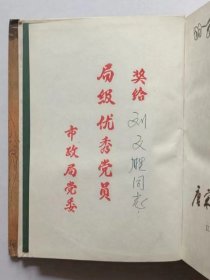 奖给
刘文胜同志
局级优秀党员
市政局党委